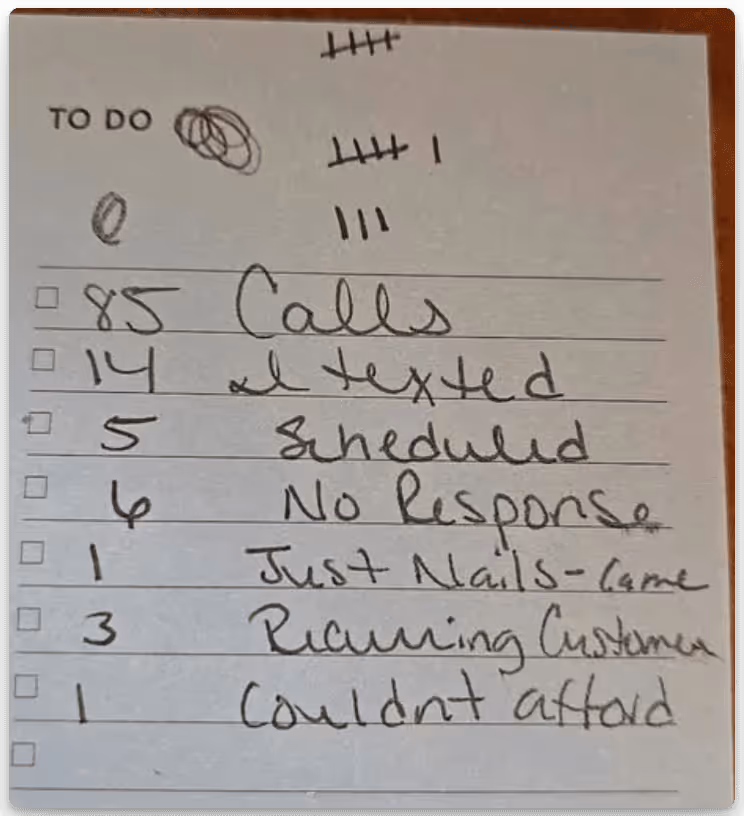 TO DO
85 Calls
14 I texted
5 Scheduled
6 No Response
1 Just Nails - Came
3 Recurring Customer
1 Couldnt afford